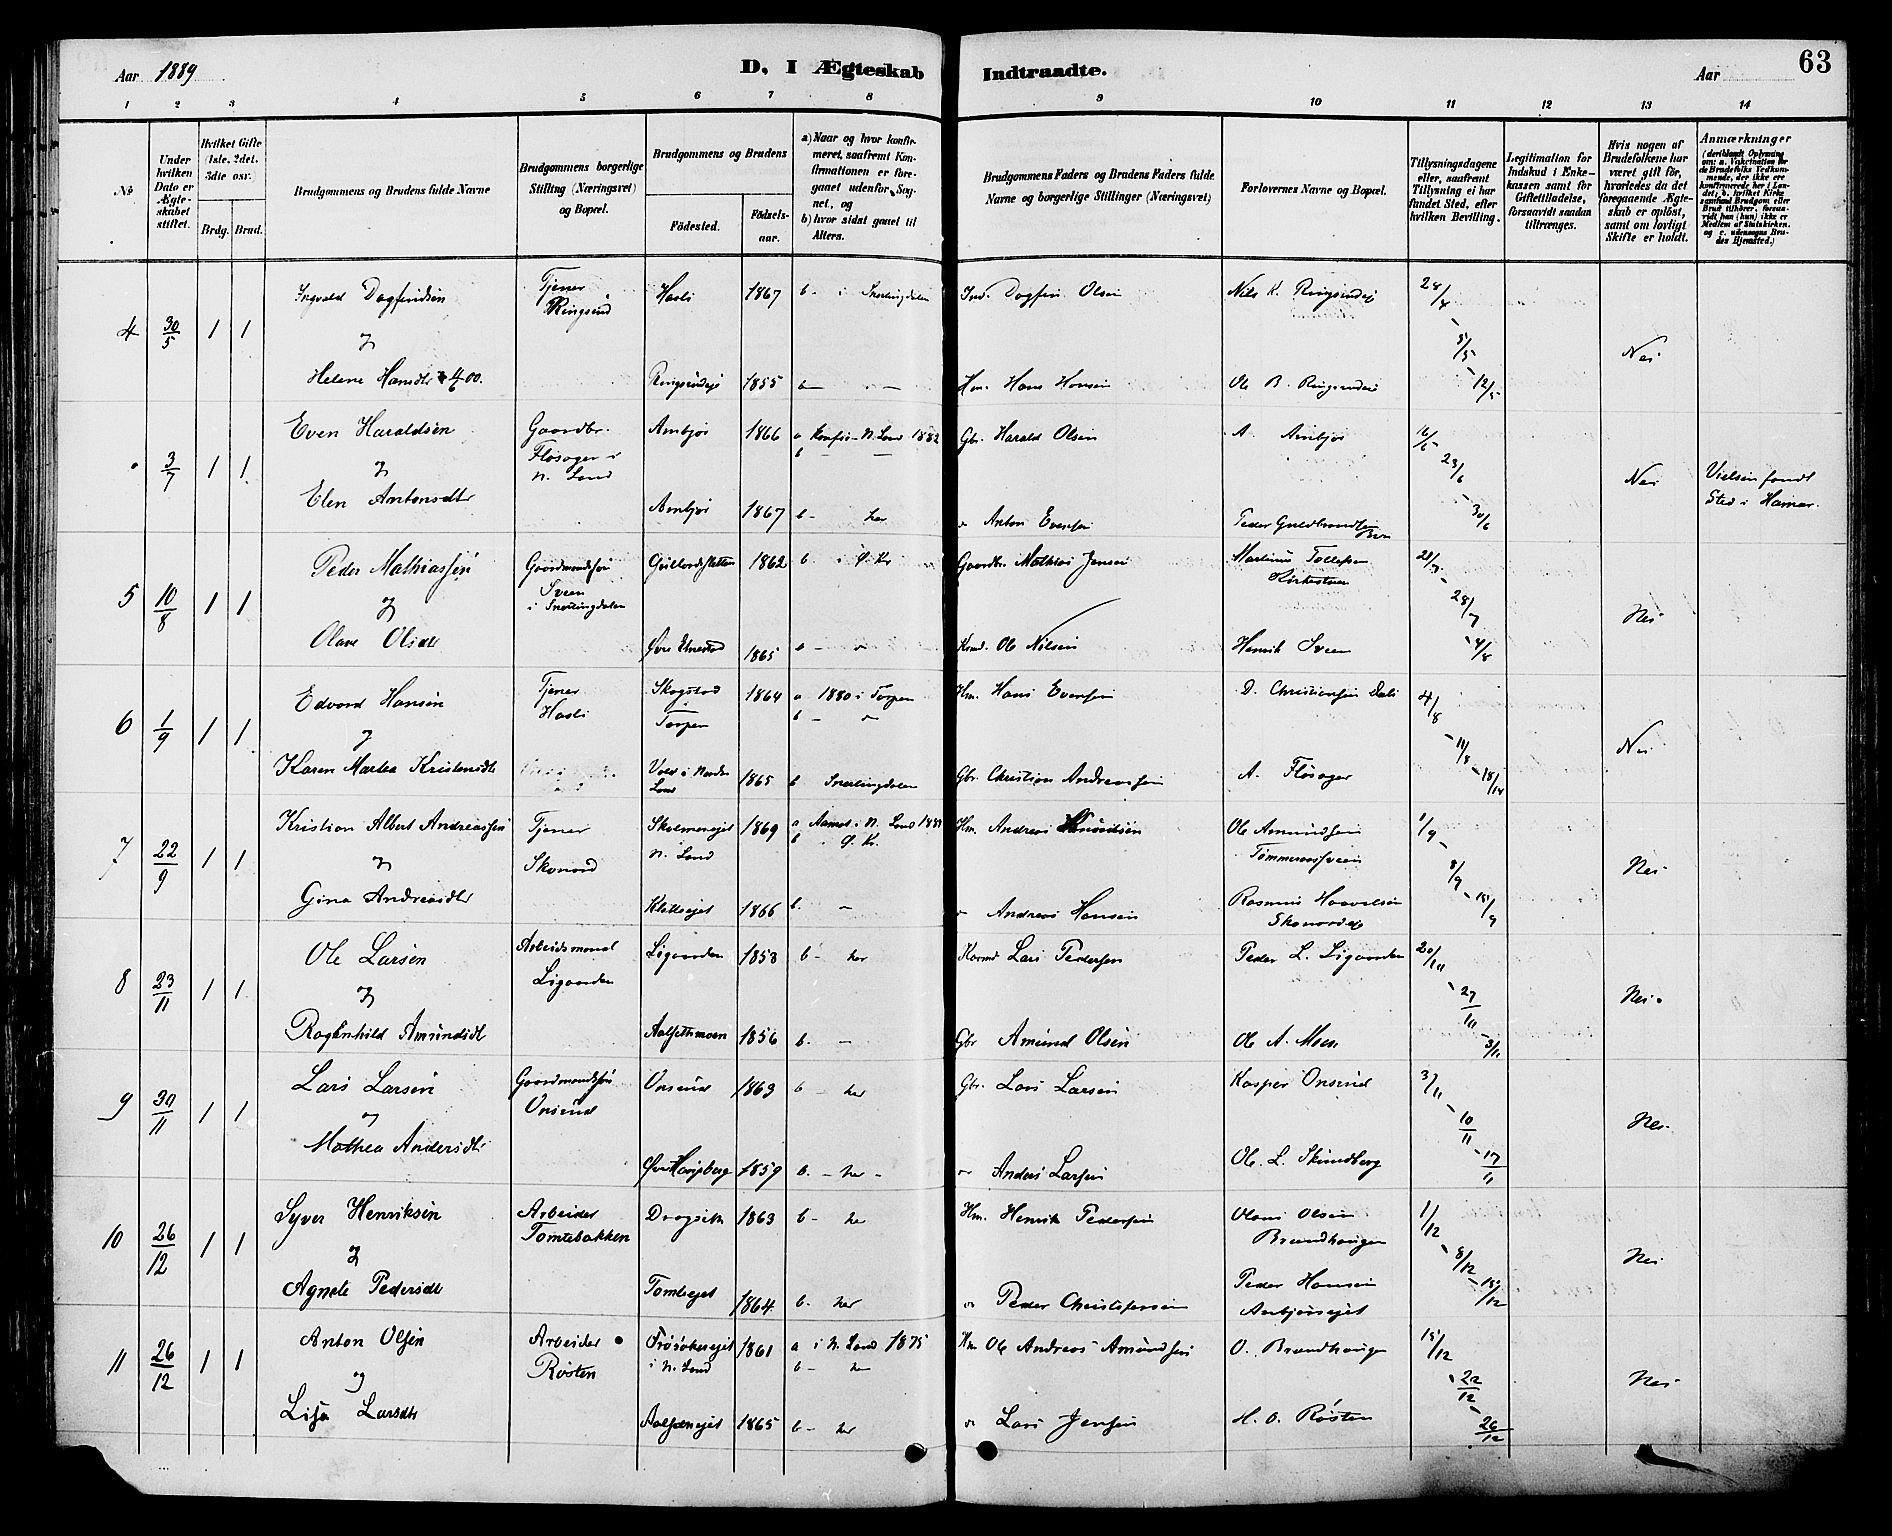 Aar 1889
D, I Ægteskab Indtraadte.
Aar
63
1 2 3 4 5 6 7 8 9 10 11 12 13 14
No.
Under hvilken Dato er Ægteskabet stiftet.
Hvilket Gifte (1ste, 2det, 3die osv.
Brdg. Brud.
Brudgommens og Brudens fulde Navne
Brudgommens borgerlige Stilling (Næringsvei) og Bopæl.
Brudgommens og Brudens
Fødested.
Fødselsaar.
a) Naar og hvor konfirmeret, saafremt Konfirmationen er foregaaet udenfor Sognet, og
b) hvor sidst gaaet til Alters.
Brudgommens Faders og Brudens Faders fulde Navne og borgerlige Stillinger (Næringsvei)
Forlovernes Navne og Bopæl.
Tillysningsdagene eller, saafremt Tillysning ei har fundet Sted, efter hvilken Bevilling.
Legitimation for Indskud i Enkekassen samt for Giftetilladelse, forsaavidt saadan tiltrænges.
Hvis nogen af Brudefolkene har været gift før, hvorledes da det foregaaende Ægteskab er opløst, samt om lovligt Skifte er holdt.
Anmærkninger
4 30/5 1 1 Ingvald Dagfindsen Tjener Ringsrud Hasli 1867 b - i Snertingdalen Ind. Dagfin Olsen Nils K. Ringsrudej 28/4 - 5/5 - 12/5 Nei
og
Helene Hansdtr Ringsrudeje 1855 b — — Hm. Hans Hansen Ole B. Ringsrudeie
3/7 1 1 Even Haraldsen Gaardbr. Flösager i N. Land Ambjør 1866 a Konfir. N. Land 1882 b — Gbr. Harald Olsen A. Ambjør 16/6 - 23/6 - 30/6 Nei Vielsen fandt Sted i Hamar.
og
Elen Antonsdtr Ambjør 1867 b - her " Anton Evensen Peder Guldbrandsen
5 10/8 1 1 Peder Mathiassen Gaardmandssøn Sveen i Snertingdalen 1862 b - i Ø. Kr Gaardbr. Mathias Jensen Martinus Tollefsen 21/7 - 28/7 - 4/8 Nei
og
Olave Olsdtr Øvre 1865 b - " Ole Nilsen Henrik Sveen
6 1/9 1 1 Edvard Hansen Tjener Hasli Skogstad Torpen 1864 a 1880 i Torpen b - " Hm. Hans Evensen D. Christiansen Dali 4/8 - 11/8 - 18/ Nei
og
Karen Martea Kristensdtr Vold i Nordre Land 1865 b Snertingdalen Gbr. Christian Andreassen A. Flösager
7 22/9 1 1 Kristian Albert Andreassen Tjener Skonord N. Land 1869 a Aamot i N. Land b " Ø. Kr. Hm. Andreas Ole Amundsen Tømmeraassveen 1/9 - 8/9 - 15/9 Nei
og
Gina Andreasdtr Klettuejet 1866 b. - " Andreas Hansen Rasmus Haavelsen
8 23/11 1 1 Ole Larsen Arbeidsmand Ligaarden Ligaarden 1853 b - her Lars Pedersen Peder L. Ligaarden 27/11 - 3/11 Nei
og
Ragenhild Amundsdtr Aalsethmoen 1856 b. — Gbr Amund Olsen Ole A. Moen
9 30/11 1 1 Lars Larsen Gaardmandssøn Onsrud Onsrud 1863 b - her Gbr. Lars Larsen Kasper Onsrud 3/11 - 10/11 - 17/11 Nei
og
Mathea Andersdtr 1859 b. - her - " Anders Larsen Ole. L. Skundberg
10 26/12 1 1 Syver Henriksen Arbeider Tomtebakken Dragseth 1863 b - her Hm. Henrik Pedersen Olaus Olsen Brandhaugen 1/12 - 8/12 - 15/12 Nei
og
Agnete Pedersdtr Tomteejet 1864 b. her " Peder Christophersen Peder Hansen Ambjørsejet
11 26/12 1 1 Anton Olsen Arbeider Røsten Frøsakerejet i N. Land 1861 a i N. Land 1875 b - her Hm Ole Andreas Amundsen O. Brandhaugen 15/12 - 22/12 - 26/12 Nei
og
Lisa Larsdtr 1865 b - her " Lars Jensen H. O. Røsten